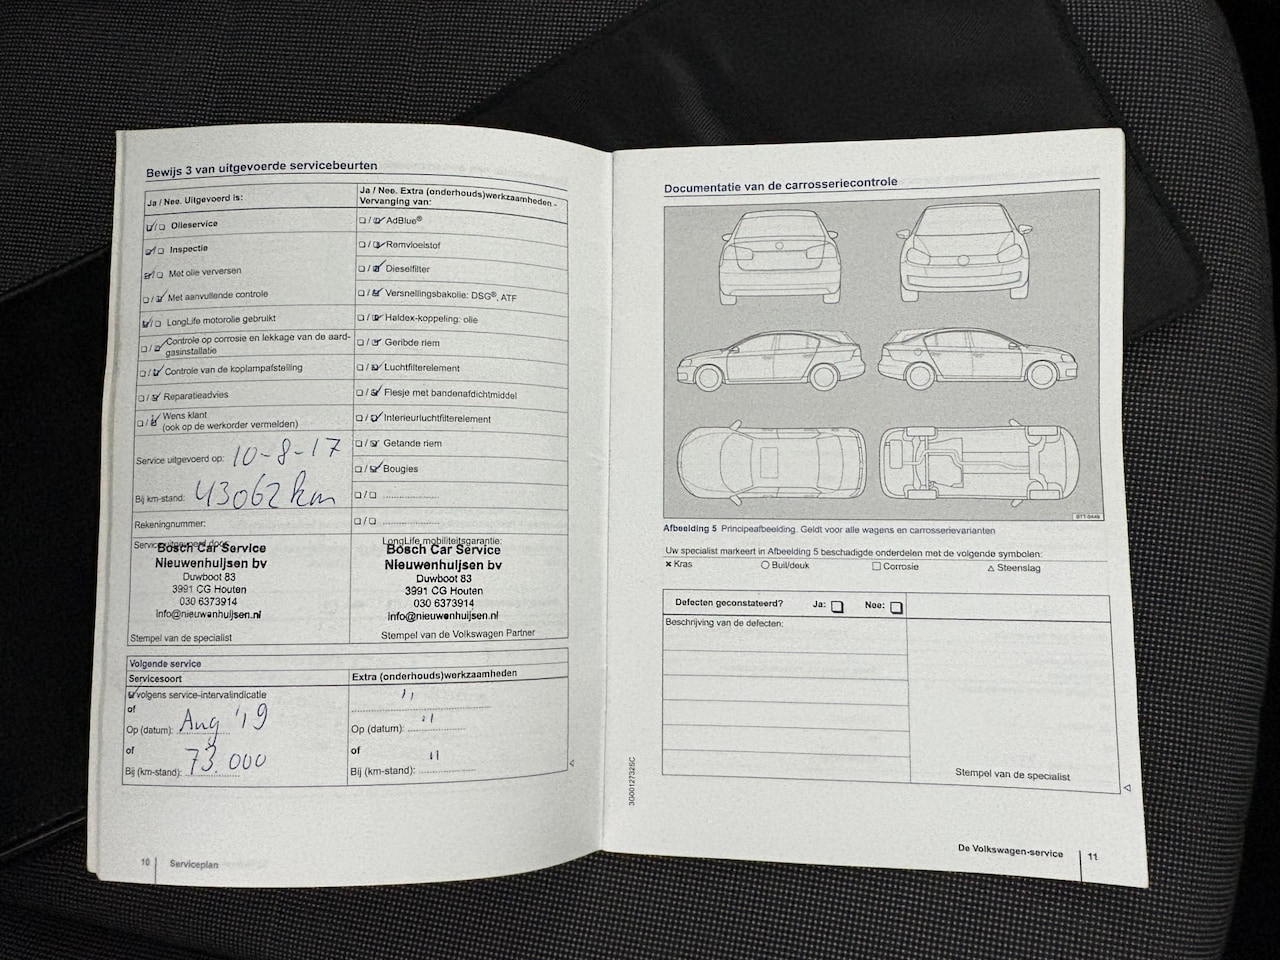 Bewijs 3 van uitgevoerde servicebeurten
Ja / Nee. Uitgevoerd is:
Olieservice
Inspectie
Met olie verversen
Met aanvullende controle
LongLife motorolie gebruikt
Controle op corrosie en lekkage van de aard-
gasinstallatie
Controle van de koplampafstelling
Reparatieadvies
Wens klant
(ook op de werkorder vermelden)
Service uitgevoerd op: 10-8-17
Bij km-stand: 43062 km
Rekeningnummer:
Service uitgevoerd door:
Bosch Car Service
Nieuwenhuijsen bv
Duwboot 83
3991 CG Houten
030 6373914
info@nieuwenhuijsen.nl
Stempel van de specialist
Ja / Nee. Extra (onderhouds)werkzaamheden -
Vervanging van:
AdBlue®
Remvloeistof
Dieselfilter
Versnellingsbakolie: DSG®, ATF
Haldex-koppeling: olie
Geribde riem
Luchtfilterelement
Flesje met bandenafdichtmiddel
Interieurluchtfilterelement
Getande riem
Bougies
LongLife mobiliteitsgarantie:
Bosch Car Service
Nieuwenhuijsen bv
Duwboot 83
3991 CG Houten
030 6373914
info@nieuwenhuijsen.nl
Stempel van de Volkswagen Partner
Volgende service
Servicesoort
volgens service-intervalindicatie
of
Op (datum): Aug '19
of
Bij (km-stand): 73.000
Extra (onderhouds)werkzaamheden
''
Op (datum): ''
of
Bij (km-stand): ''
10 Serviceplan
Documentatie van de carrosseriecontrole
BTT-0449
Afbeelding 5 Principeafbeelding. Geldt voor alle wagens en carrosserievarianten
Uw specialist markeert in Afbeelding 5 beschadigde onderdelen met de volgende symbolen:
× Kras ○ Buil/deuk □ Corrosie △ Steenslag
Defecten geconstateerd? Ja: □ Nee: □
Beschrijving van de defecten:
Stempel van de specialist
3G00127325C
De Volkswagen-service 11